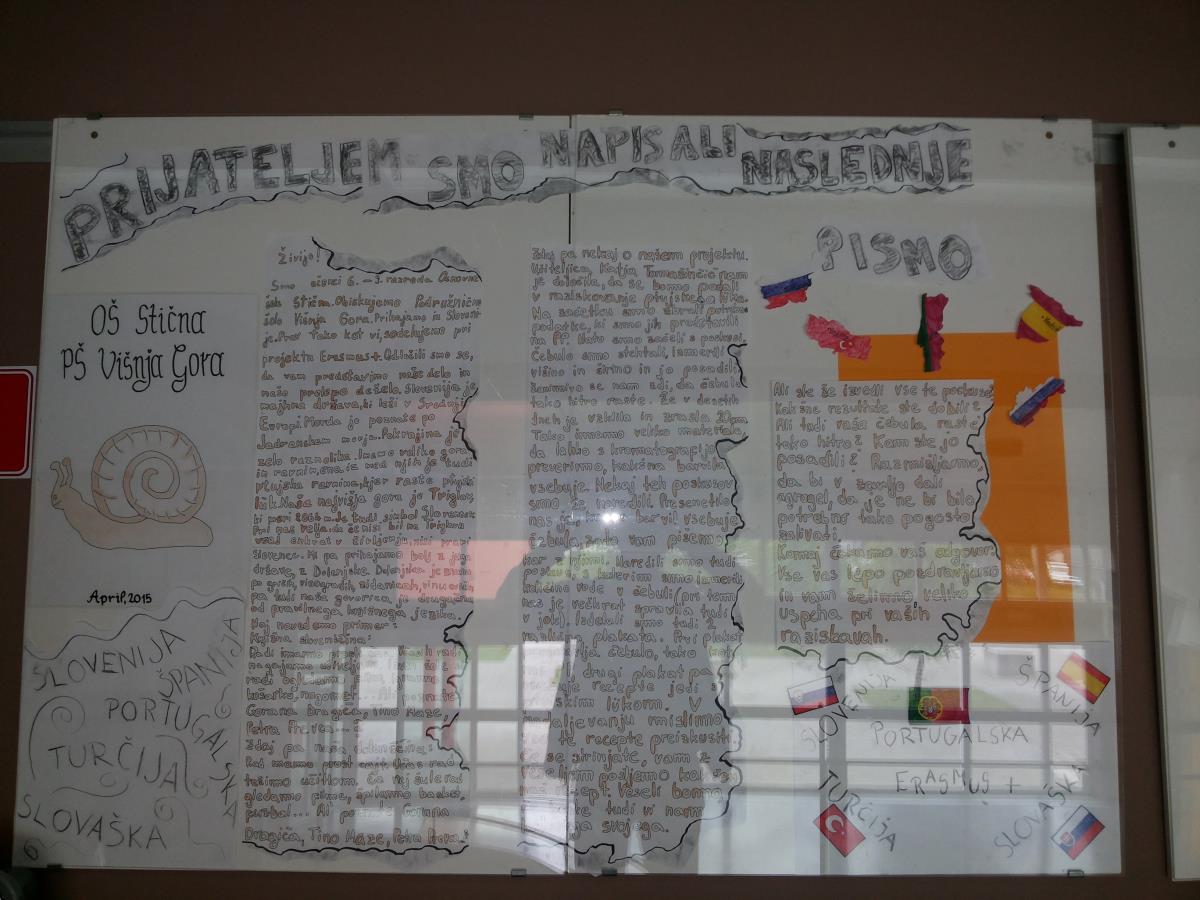 PRIJATELJEM SMO NAPISALI NASLEDNJE
PISMO
OŠ Stična
PŠ Višnja Gora
April, 2015
SLOVENIJA
ŠPANIJA
PORTUGALSKA
TURČIJA
SLOVAŠKA
Živijo!
Smo učenci 6. – 9. razreda Osnovne
šole Stična. Obiskujemo Podružnično
šolo Višnja Gora. Prihajamo iz Sloveni
je. Prav tako kot vi, sodelujemo pri
projektu Erasmus+. Odločili smo se,
da vam predstavimo naše delo in
našo prelepo deželo. Slovenija je
majhna država, ki leži v Srednji
Evropi. Morda jo poznate po
Jadranskem morju. Pokrajina je
zelo raznolika. Imamo veliko gora
in ravnin, ena iz med njih je tudi
ptujska ravnina, kjer raste ptujski
lük. Naša najvišja gora je Triglav,
ki meri 2864 m. Je tudi simbol Slovenije.
Pri nas velja, da če nisi bil na Triglavu
vsaj enkrat v življenju, nisi pravi
slovenec. Mi pa prihajamo bolj z juga
države, z Dolenjske. Dolenjska je znana
po gričih, vinogradih, zidanicah, vinu
pa tudi naša govorica je drugačna
od pravilnega knjižnega jezika.
Naj navedemo primer:
Knjižna slovenščina:
Radi imamo
nagajamo učiteljem.
radi
košarko, nogomet... Ali poznate
Gorana Dragiča, Tino Maze,
Petra Prevca...?
Zdaj pa naša dolenjščina:
Rad mamo prost
težimo učitlom. Če
gledamo filme, špilamo basket,
fuzbal... Al poznate Gorana
Dragiča, Tino Maze, Petra
Zdaj pa nekaj o našem projektu.
Učiteljica Katja Tomažinčič nam
je določila, da se bomo podali
v raziskovanje ptujskega lüka.
Na začetku smo zbrali potrebne
podatke, ki smo jih predstavili
na PP. Nato smo začeli s poskusi.
Čebulo smo stehtali, izmerili
višino in širino in jo posadili.
Zanimivo se nam zdi, da čebula
tako hitro raste. Že v desetih
dneh je vzklila in zrasla 20cm.
Tako imamo veliko materiala,
da lahko s kromatografijo
preverimo, kakšna barvila
vsebuje. Nekaj teh poskusov
smo že naredili. Presenetilo
nas je, koliko barvil vsebuje
čebula, zato vam pišemo
kar z njimi. Naredili smo tudi
poskus, s katerim smo izmerili
količino vode v čebuli (pri tem
nas je večkrat spravila tudi
v jok). Izdelali smo tudi 2
različna plakata. Prvi plakat
čebulo, tako kot
drugi plakat pa
recepte jedi s
lükom. V
nadaljevanju mislimo
te recepte preizkusiti.
Če se strinjate, vam z
veseljem pošljemo kak
recept. Veseli bomo,
če tudi vi nam
svojega.
Ali ste že izvedli vse te poskuse?
Kakšne rezultate ste dobili?
Ali tudi vaša čebula raste
tako hitro? Kam ste jo
posadili? Razmišljamo,
da bi v zemljo dali
agrogel, da je ne bi bilo
potrebno tako pogosto
zalivati.
Komaj čakamo vaš odgovor.
Vse vas lepo pozdravljamo
in vam želimo veliko
uspeha pri vaših
raziskavah.
SLOVENIJA
ŠPANIJA
PORTUGALSKA
ERASMUS +
TURČIJA
SLOVAŠKA